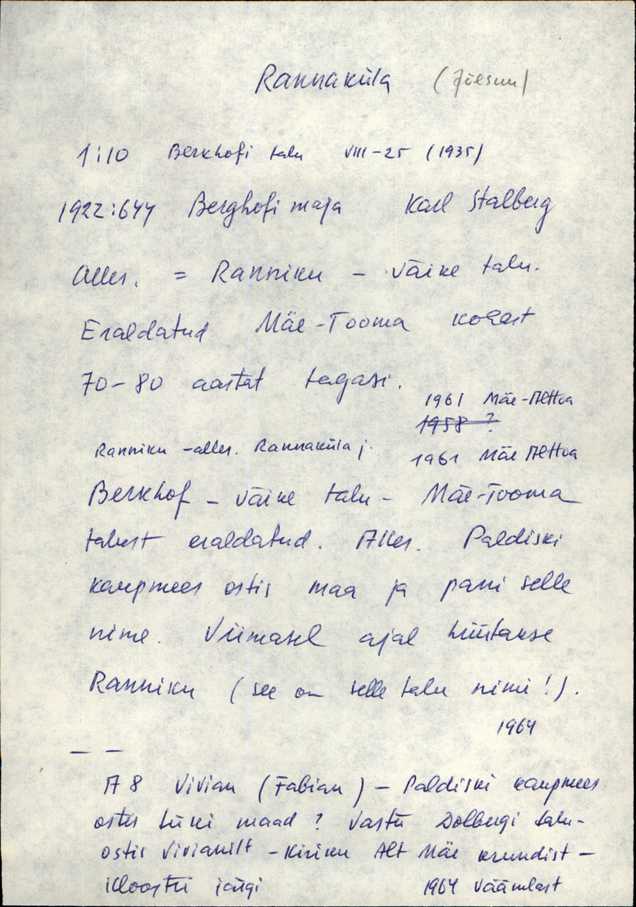 Rannaküla (Jõesuu)
1:10 Berkhofi talu VIII-25 (1935)
1922:644 Berghofi maja Karl Stalberg
Alles. = Ranniku - väike talu.
Eraldatud Mäe-Tooma kohast
70-80 aastat tagasi.
1961 Mäe-Alttoa
1958 ?
Ranniku -alles. Rannaküla j. 1961 Mäe Alttoa
Berkhof - väike talu - Mäe-Tooma
talust eraldatud. Alles. Paldiski
kaupmees ostis maa ja pani selle
nime. Viimasel ajal hüütakse
Ranniku (see on selle talu nimi!).
1964
— —
A 8 Vivian (Fabian) - Paldiski kaupmees
ostis tüki maad ? Vastu Dolbergi talu-
ostis Vivianilt - Kiriku Alt Mäe krundist -
Kloostri jõgi 1964 Väämlast